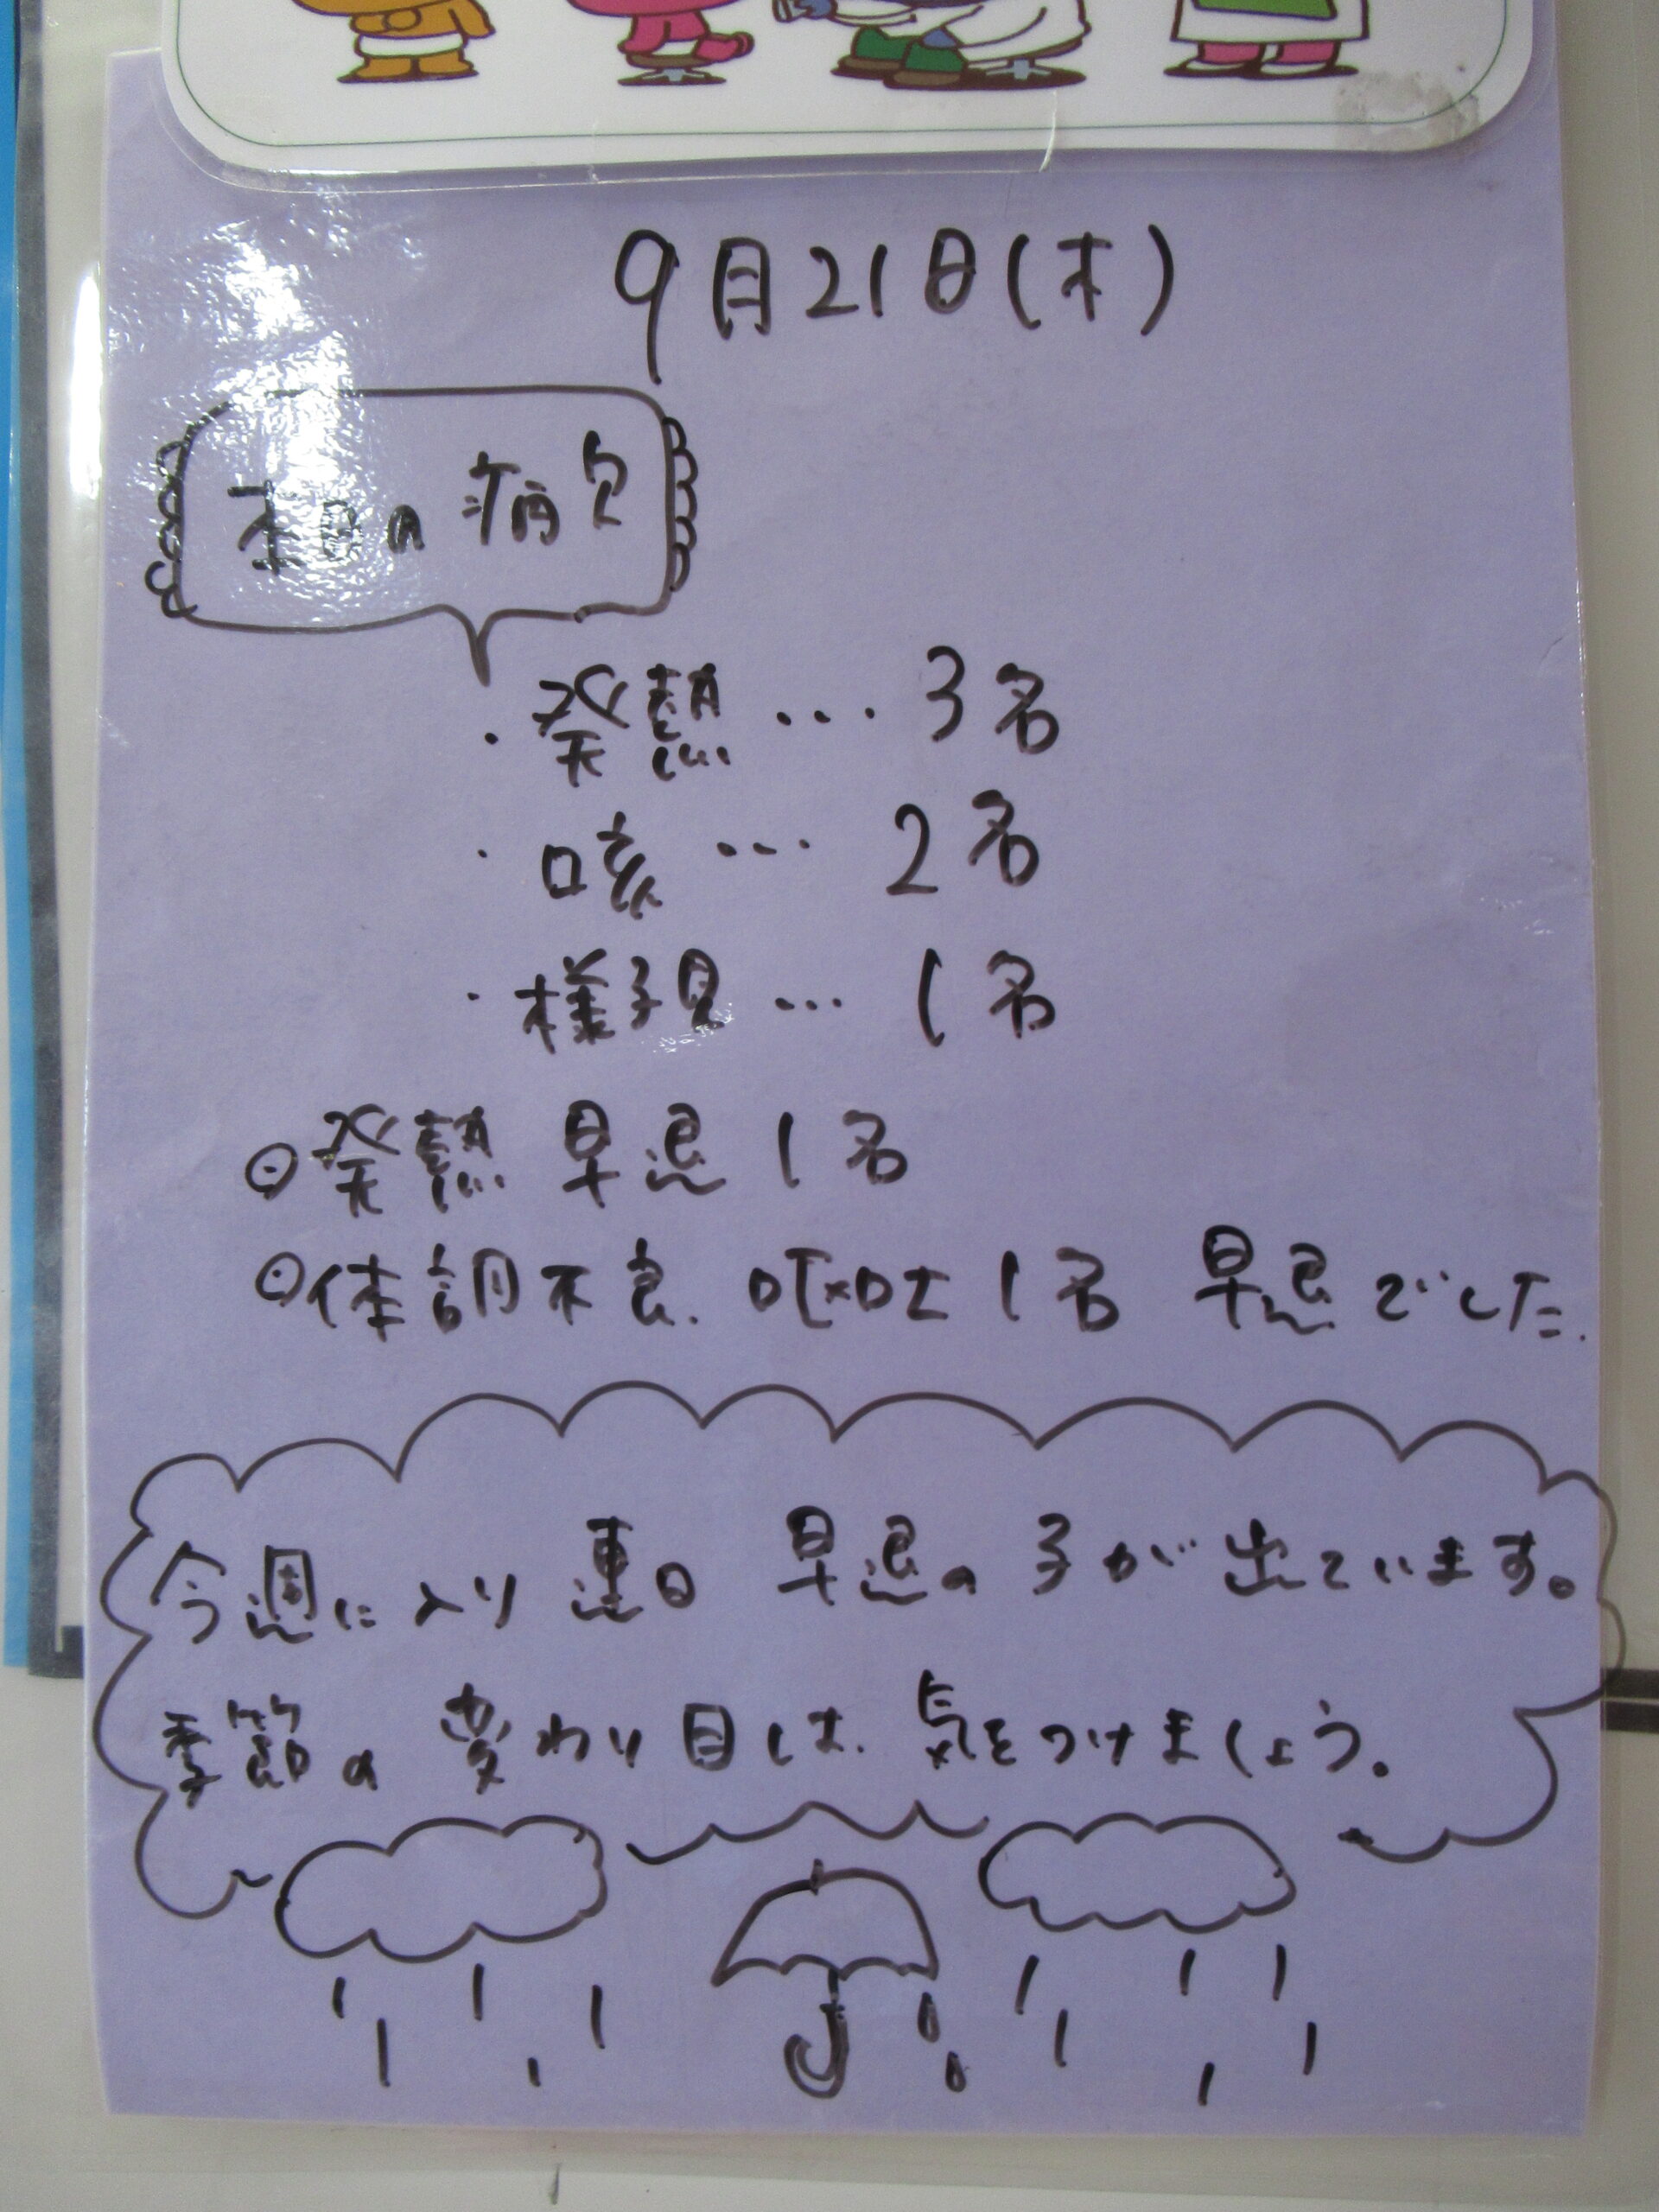 9月21日(木)
本日の病欠
・発熱…3名
・咳…2名
・様子見…1名
⊙発熱 早退1名
⊙体調不良、嘔吐1名 早退でした。
今週に入り連日 早退の子が出ています。
季節の変わり目は、気をつけましょう。